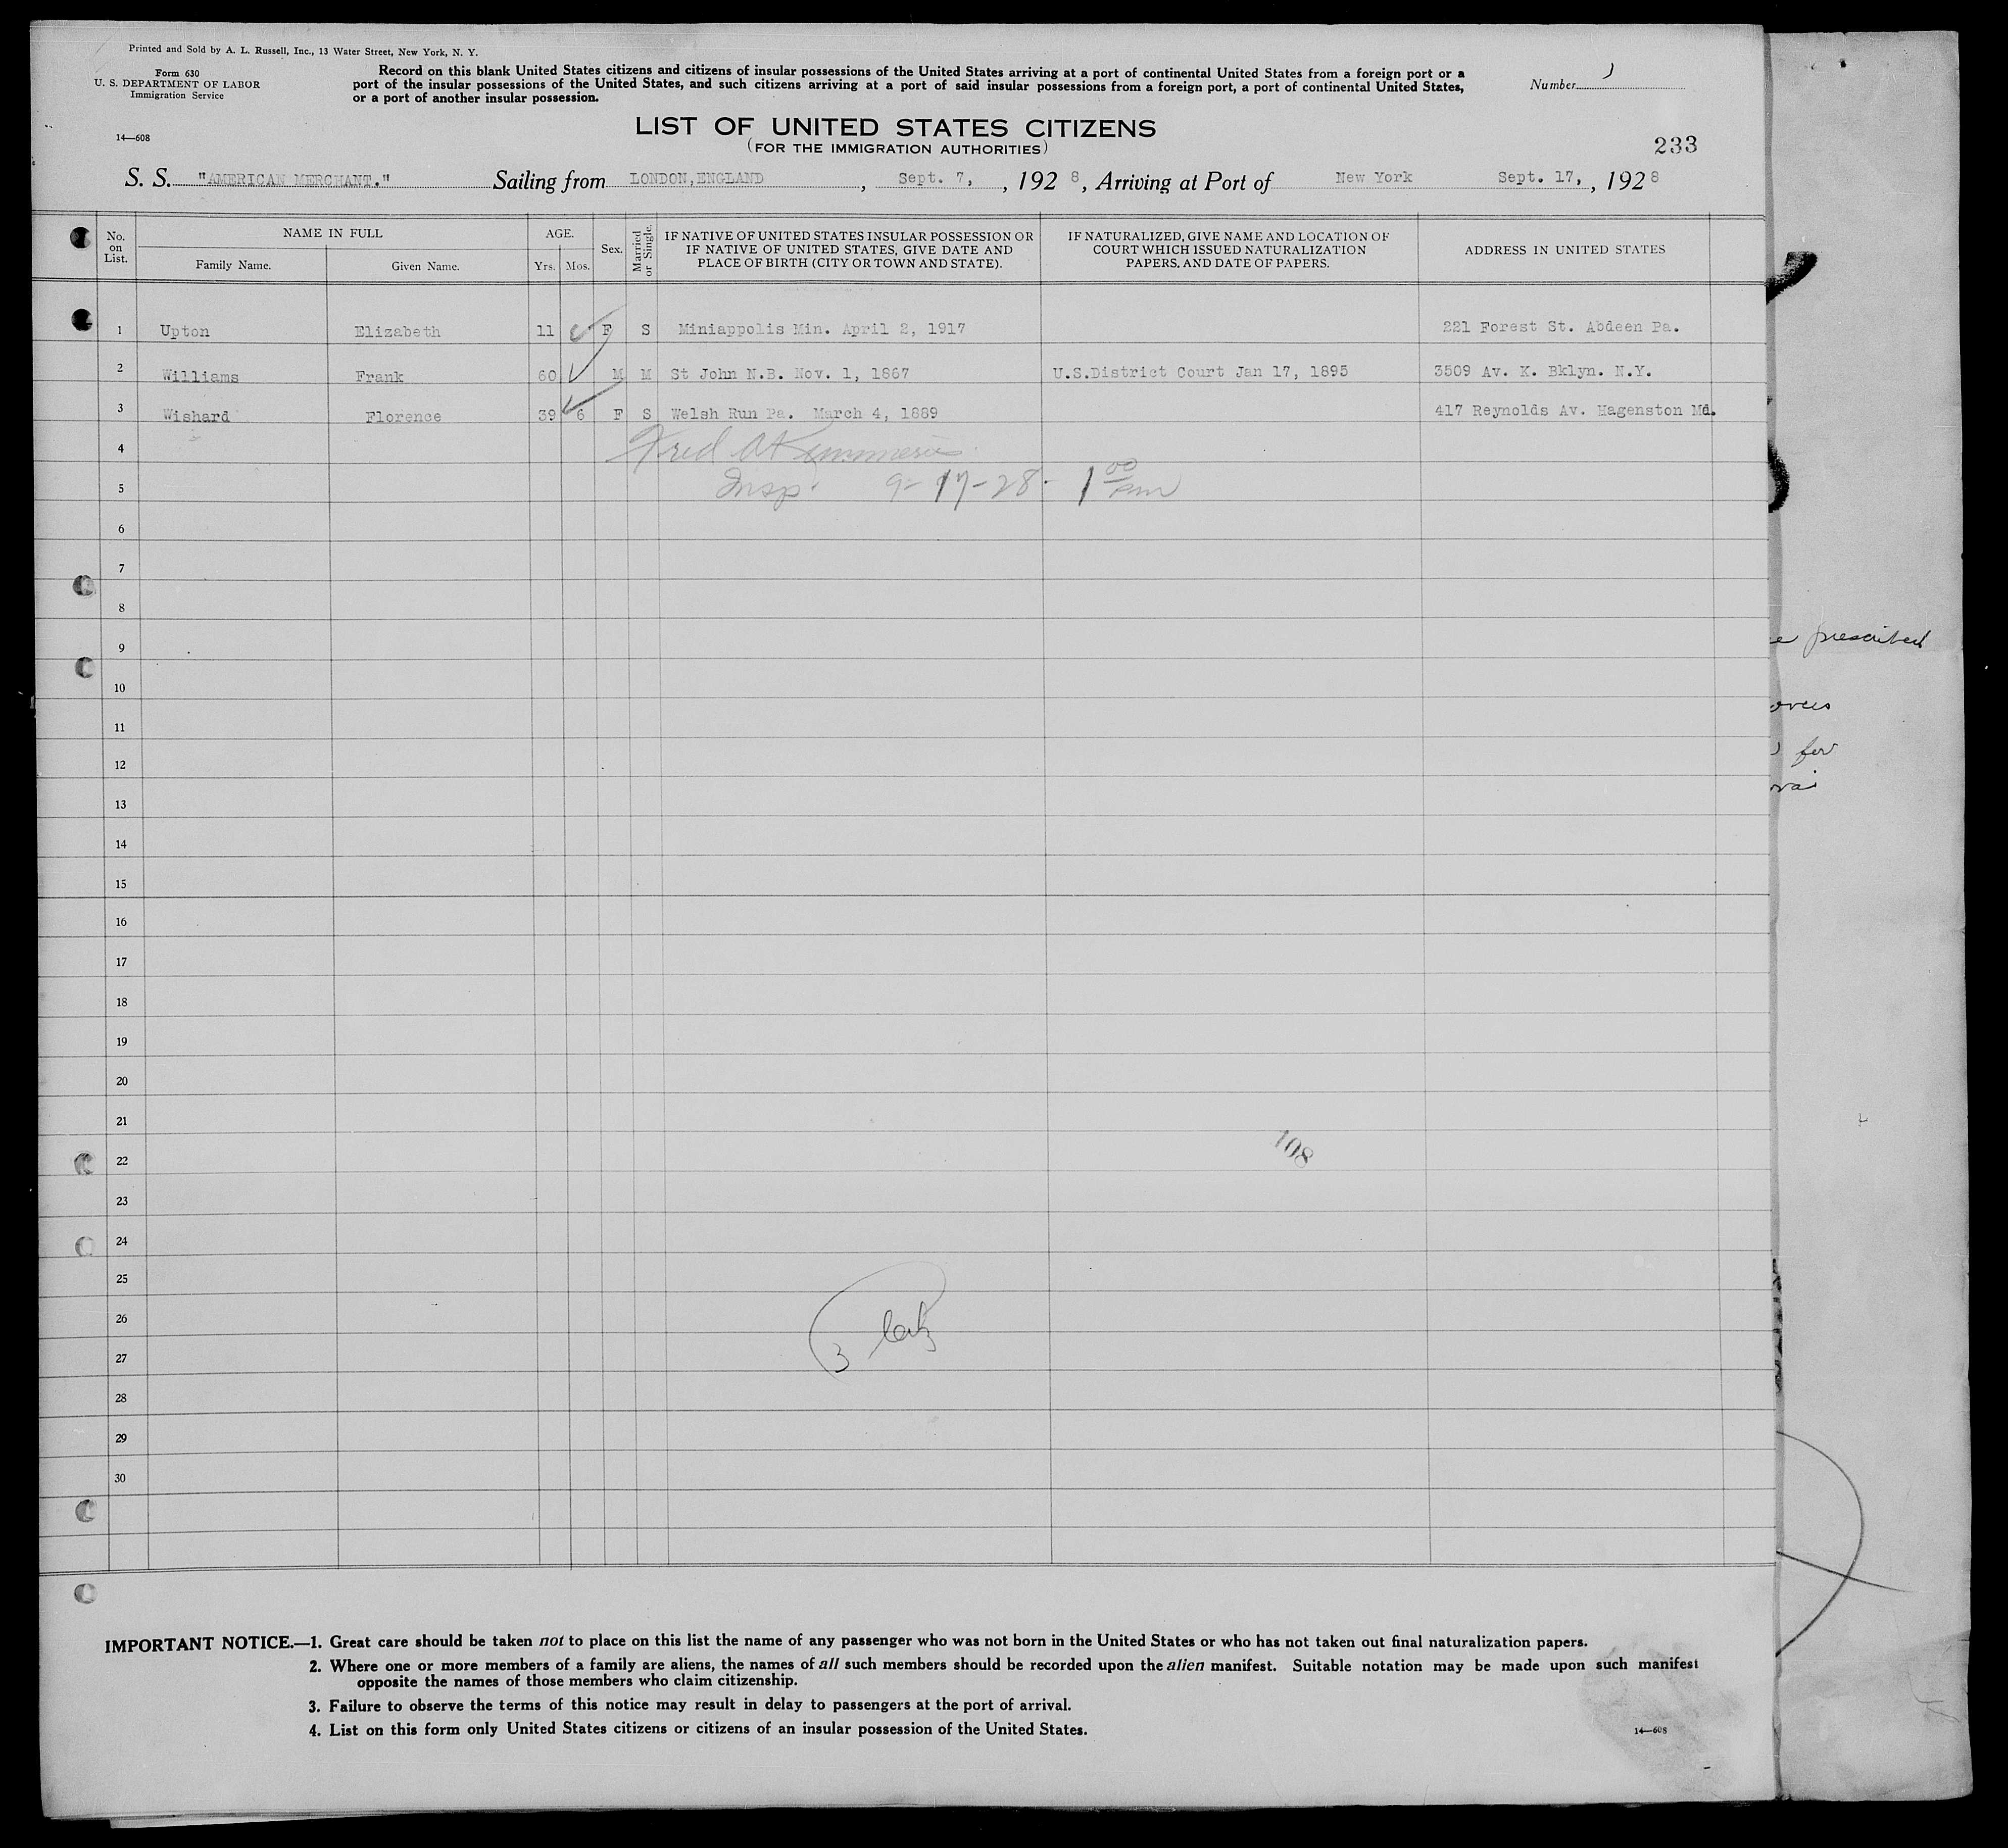 Printed and Sold by A. L. Russell, Inc., 13 Water Street, New York, N. Y.
Form 630
U. S. DEPARTMENT OF LABOR
Immigration Service
14—608
Record on this blank United States citizens and citizens of insular possessions of the United States arriving at a port of continental United States from a foreign port or a
port of the insular possessions of the United States, and such citizens arriving at a port of said insular possessions from a foreign port, a port of continental United States,
or a port of another insular possession.
Number
LIST OF UNITED STATES CITIZENS
(FOR THE IMMIGRATION AUTHORITIES)
233
S. S. "AMERICAN MERCHANT." Sailing from LONDON,ENGLAND, Sept. 7, , 192 8, Arriving at Port of New York Sept. 17, , 192 8
No. on List. NAME IN FULL Family Name. Given Name. AGE. Yrs. Mos. Sex. Married or Single. IF NATIVE OF UNITED STATES INSULAR POSSESSION OR IF NATIVE OF UNITED STATES, GIVE DATE AND PLACE OF BIRTH (CITY OR TOWN AND STATE). IF NATURALIZED, GIVE NAME AND LOCATION OF COURT WHICH ISSUED NATURALIZATION PAPERS, AND DATE OF PAPERS. ADDRESS IN UNITED STATES
1 Upton Elizabeth 11 F S Miniappolis Min. April 2, 1917 221 Forest St. Abdeen Pa.
2 Williams Frank 60 M M St John N.B. Nov. 1, 1867 U.S.District Court Jan 17, 1895 3509 Av. K. Bklyn. N.Y.
3 Wishard Florence 39 6 F S Welsh Run Pa. March 4, 1889 417 Reynolds Av. Hagenston Md.
4 Fred
5 Insp. 9-17-28- 1 00 PM
6
7
8
9
10
11
12
13
14
15
16
17
18
19
20
21
22
23
24
25
26
27
28
29
30
108
3
prescribed
for
IMPORTANT NOTICE.—1. Great care should be taken not to place on this list the name of any passenger who was not born in the United States or who has not taken out final naturalization papers.
2. Where one or more members of a family are aliens, the names of all such members should be recorded upon the alien manifest. Suitable notation may be made upon such manifest
opposite the names of those members who claim citizenship.
3. Failure to observe the terms of this notice may result in delay to passengers at the port of arrival.
4. List on this form only United States citizens or citizens of an insular possession of the United States.
14—608